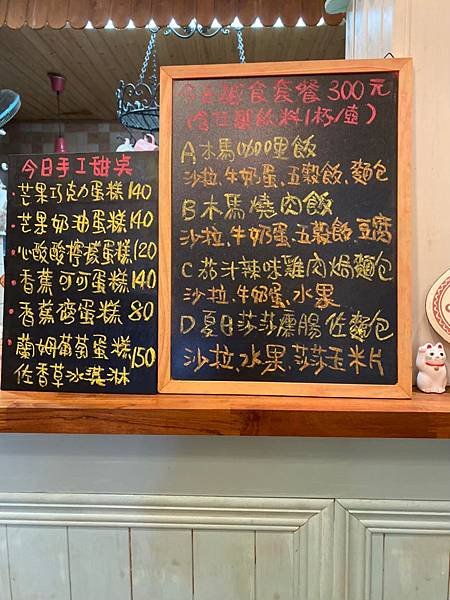 今日手工甜点
芒果巧克力蛋糕140
芒果奶油蛋糕140
心酸酸檸檬蛋糕120
香蕉可可蛋糕140
香蕉磅蛋糕 80
蘭姆葡萄蛋糕150
佐香草冰淇淋
今日輕食套餐300元
(含花果飲料1杯/壺)
A木馬咖哩飯
沙拉、牛奶蛋、五穀飯、麵包
B木馬燒肉飯
沙拉、牛奶蛋、五穀飯、豆腐
C茄汁辣味雞肉焗麵包
沙拉、牛奶蛋、水果
D夏日莎莎燻腸佐麵包
沙拉、水果、莎莎玉米片